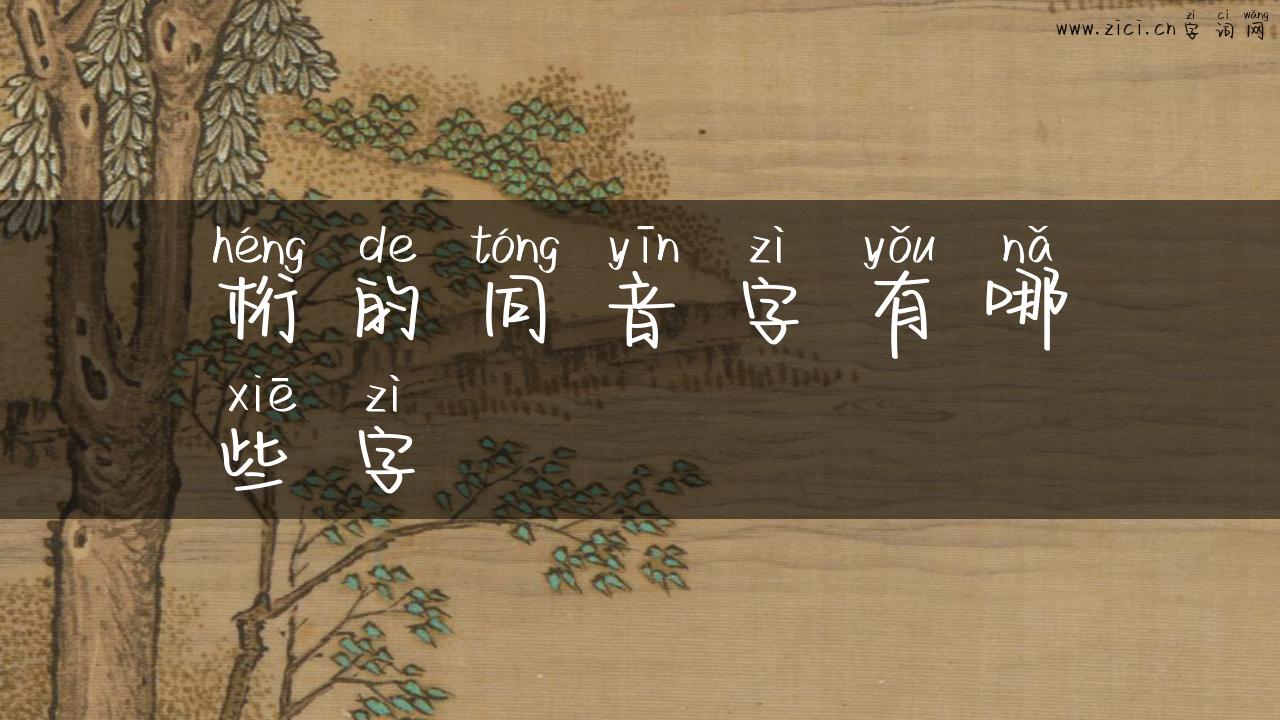 zì cí wǎng
www.zici.cn 字词网
héng de tóng yīn zì yǒu nǎ
桁的同音字有哪
xiē zì
些字